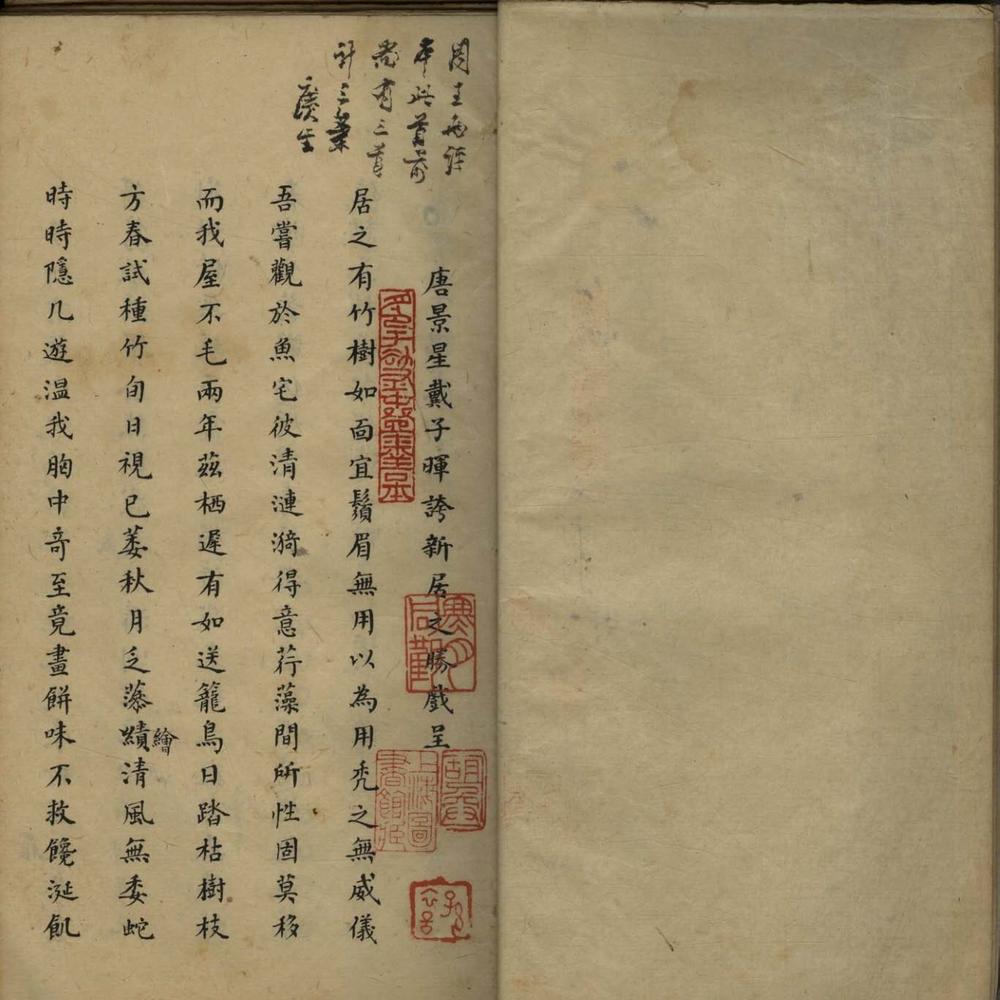 唐景星戴子暉誇新居之勝戲呈
居之有竹樹如面宜鬚眉無用以為用禿之無威儀
吾嘗觀於魚宅彼清漣漪得意荇藻間所性固莫移
而我屋不毛兩年茲栖遲有如送籠鳥日踏枯樹枝
方春試種竹旬日視已萎秋月乏藻繢清風無委蛇
繪
時時隱几遊溫我胸中奇至竟畫餅味不救饞涎飢
本此首前
尚有三首
計三葉
上海圖書館藏